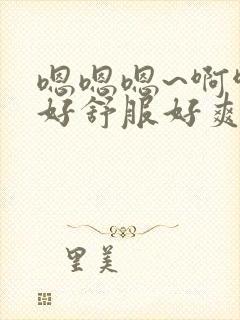 嗯嗯嗯~啊
好舒服好爽
里美